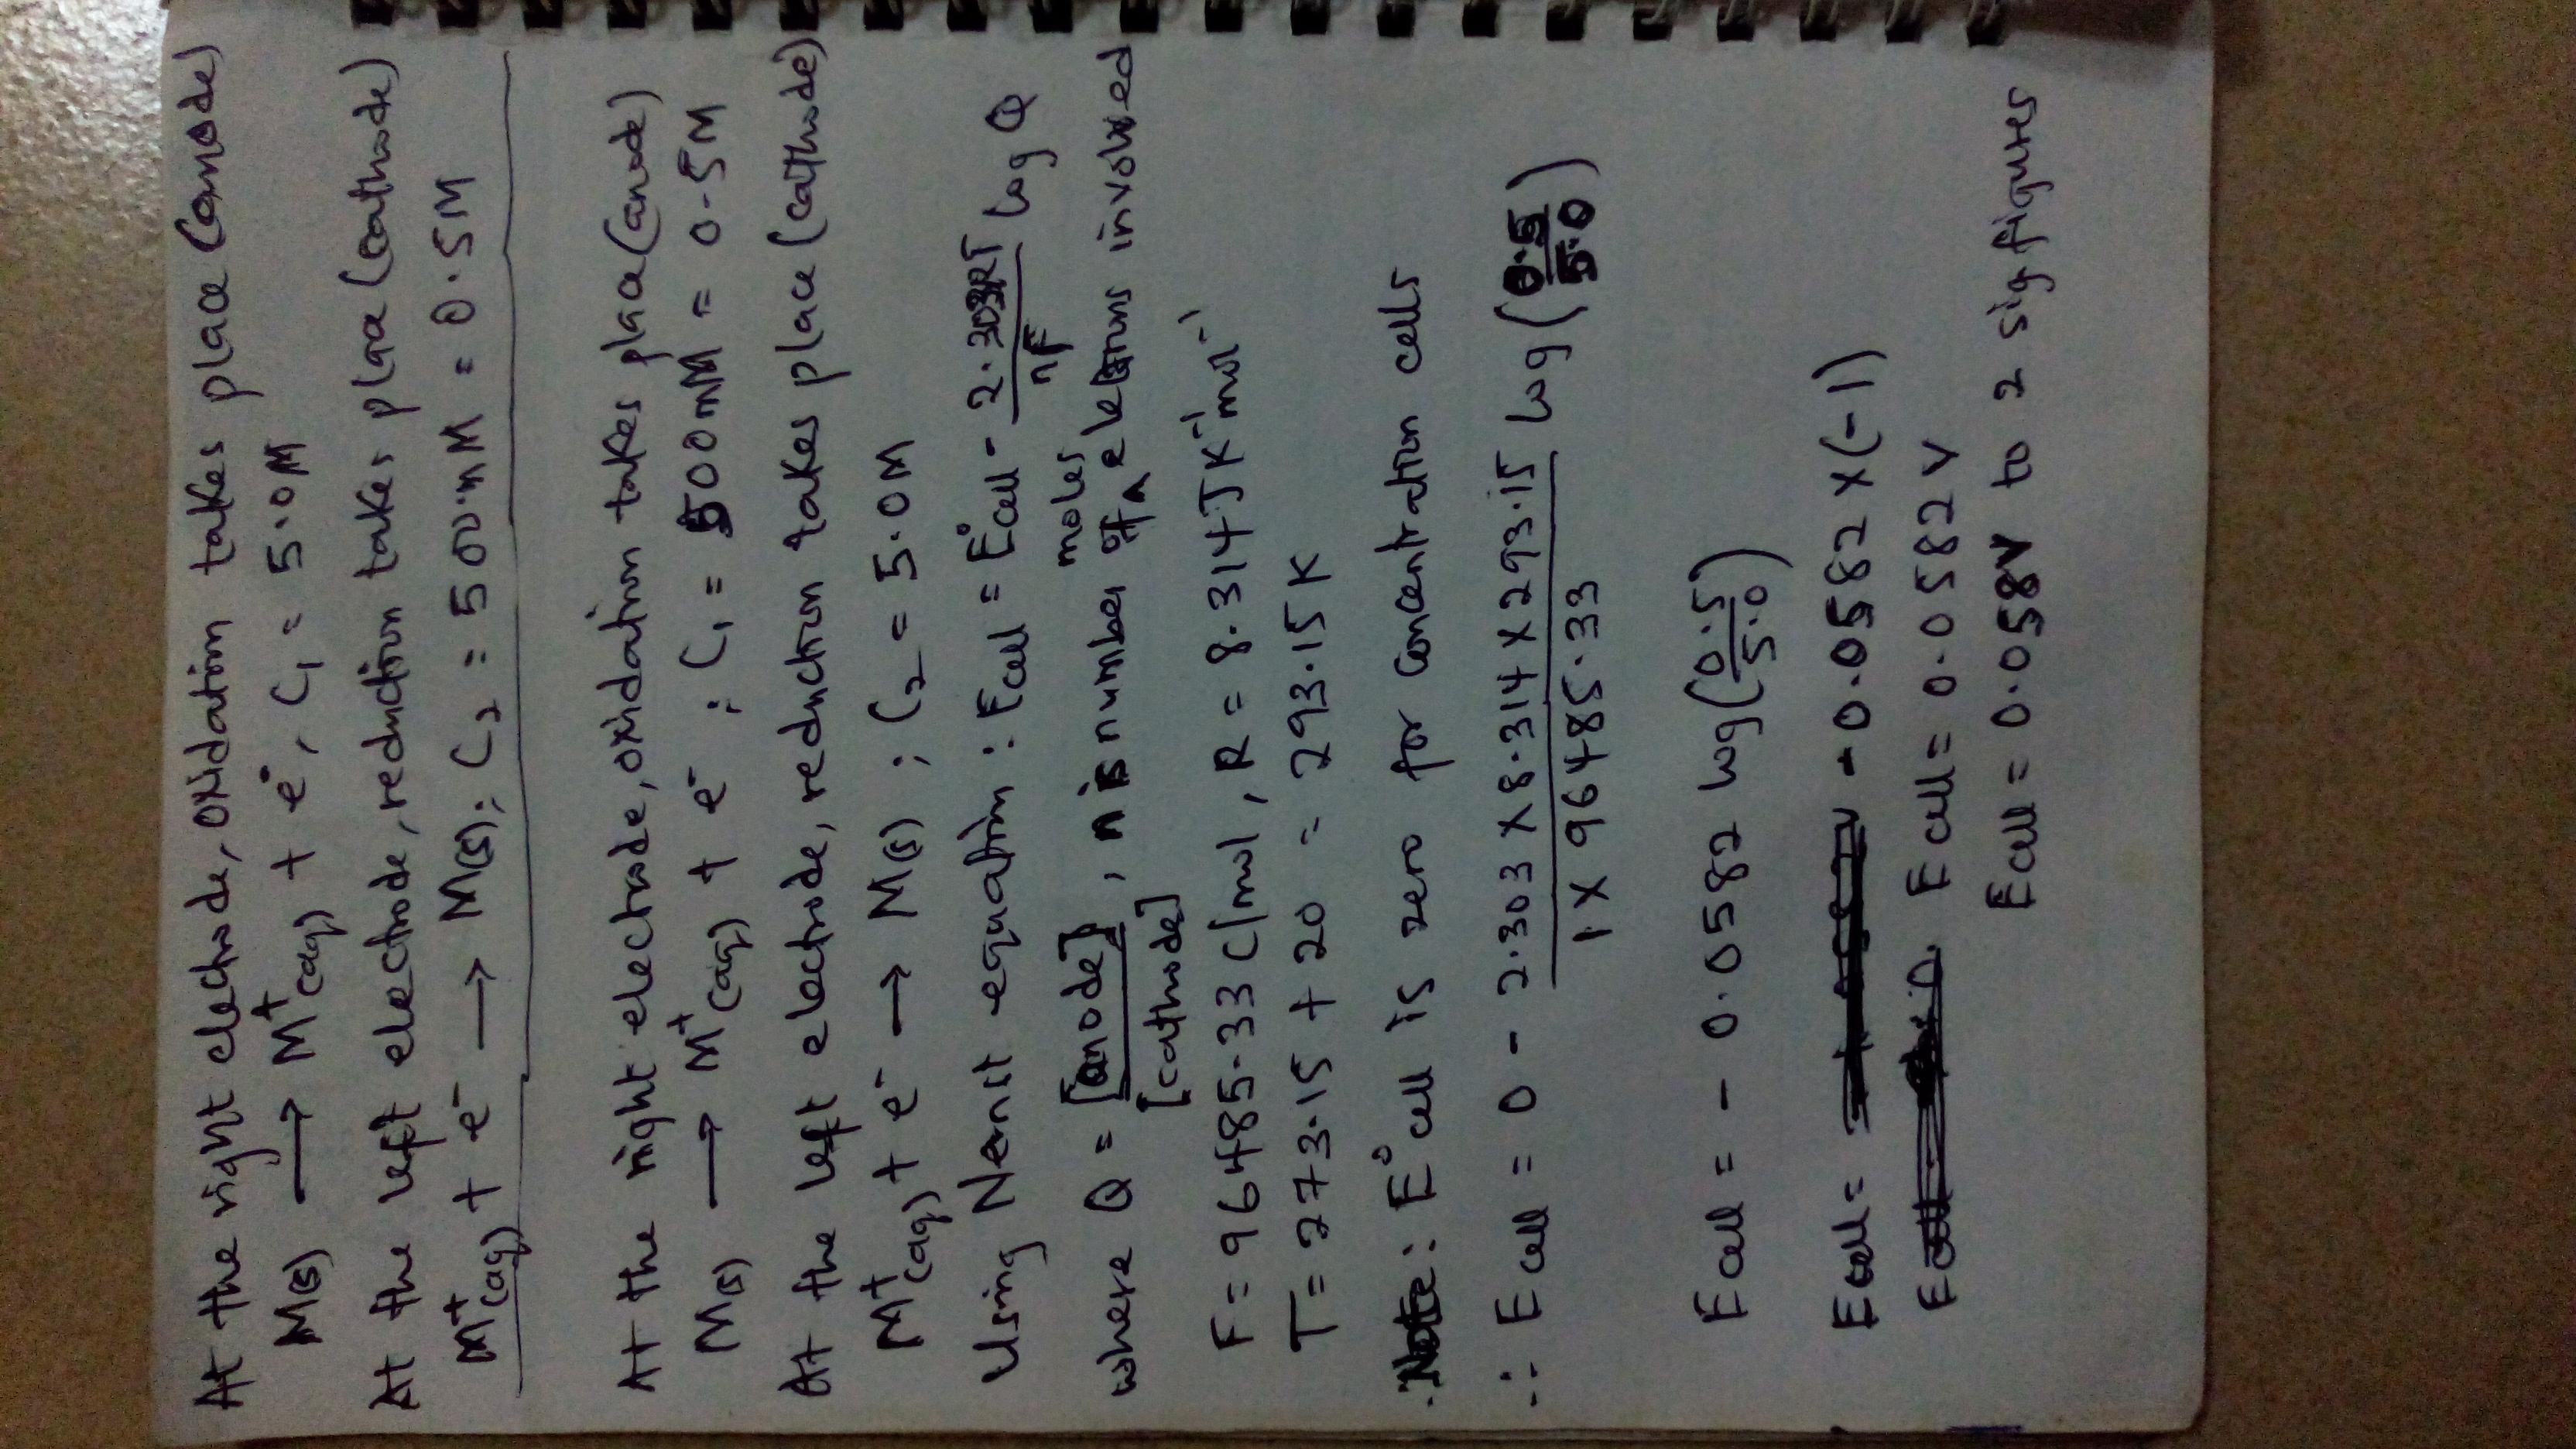 At the right electrode, oxidation takes place (anode)
M(s) → M⁺(aq) + e⁻, C₁ = 5.0M
At the left electrode, reduction takes place (cathode)
M⁺(aq) + e⁻ → M(s); C₂ = 500mM = 0.5M
At the right electrode, oxidation takes place (anode)
M(s) → M⁺(aq) + e⁻ ; C₁ = 500mM = 0.5M
At the left electrode, reduction takes place (cathode)
M⁺(aq) + e⁻ → M(s) ; C₂ = 5.0M
Using Nernst equation : Ecell = E°cell - 2.303RT/nF log Q
where Q = [anode]/[cathode] , n is number of moles electrons involved
F = 96485.33 C/mol , R = 8.314JK⁻¹mol⁻¹
T = 273.15 + 20 = 293.15K
Note: E°cell is zero for concentration cells
∴ Ecell = 0 - 2.303 x 8.314 x 293.15 / 1 x 96485.33 log (0.5/5.0)
Ecell = - 0.0582 log (0.5/5.0)
Ecell = - 0.0582 x (-1)
Ecell = 0.0582V
Ecell = 0.058V to 2 sig figures